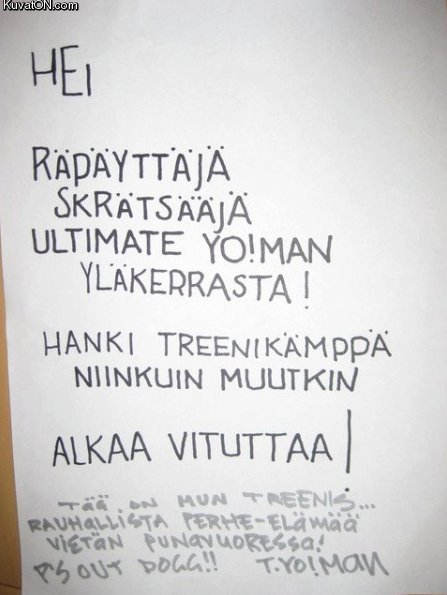 KuvatON.com
HEI
RÄPÄYTTÄJÄ
SKRÄTSÄÄJÄ
ULTIMATE YO!MAN
YLÄKERRASTA!
HANKI TREENIKÄMPPÄ
NIINKUIN MUUTKIN
ALKAA VITUTTAA!
TÄÄ ON MUN TREENIS...
RAUHALLISTA PERHE-ELÄMÄÄ
VIETÄN PUNAVUORESSA!
P'S OUT DOGG!! T.YO!MAN